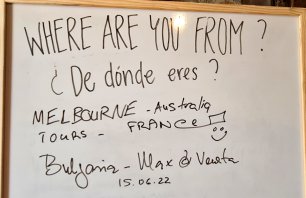 WHERE ARE YOU FROM ?
¿ De dónde eres ?
MELBOURNE - Australia
TOURS - FRANCE
Bulgaria - Max & Veneta
15.06.22